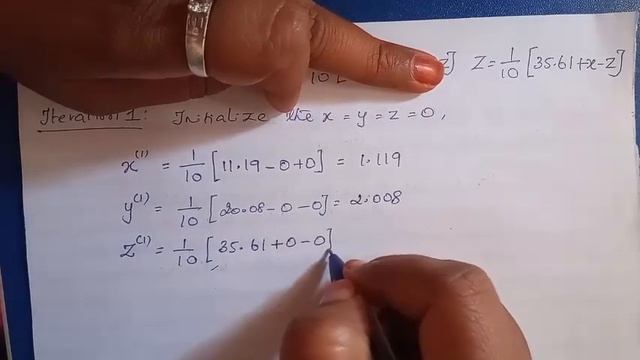 10 [ z] Z = 1/10 [35.61+x-z]
Iteration 1: Initialize the x = y = z = 0,
x^(1) = 1/10 [11.19-0+0] = 1.119
y^(1) = 1/10 [20.08-0-0] = 2.008
z^(1) = 1/10 [35.61+0-0]